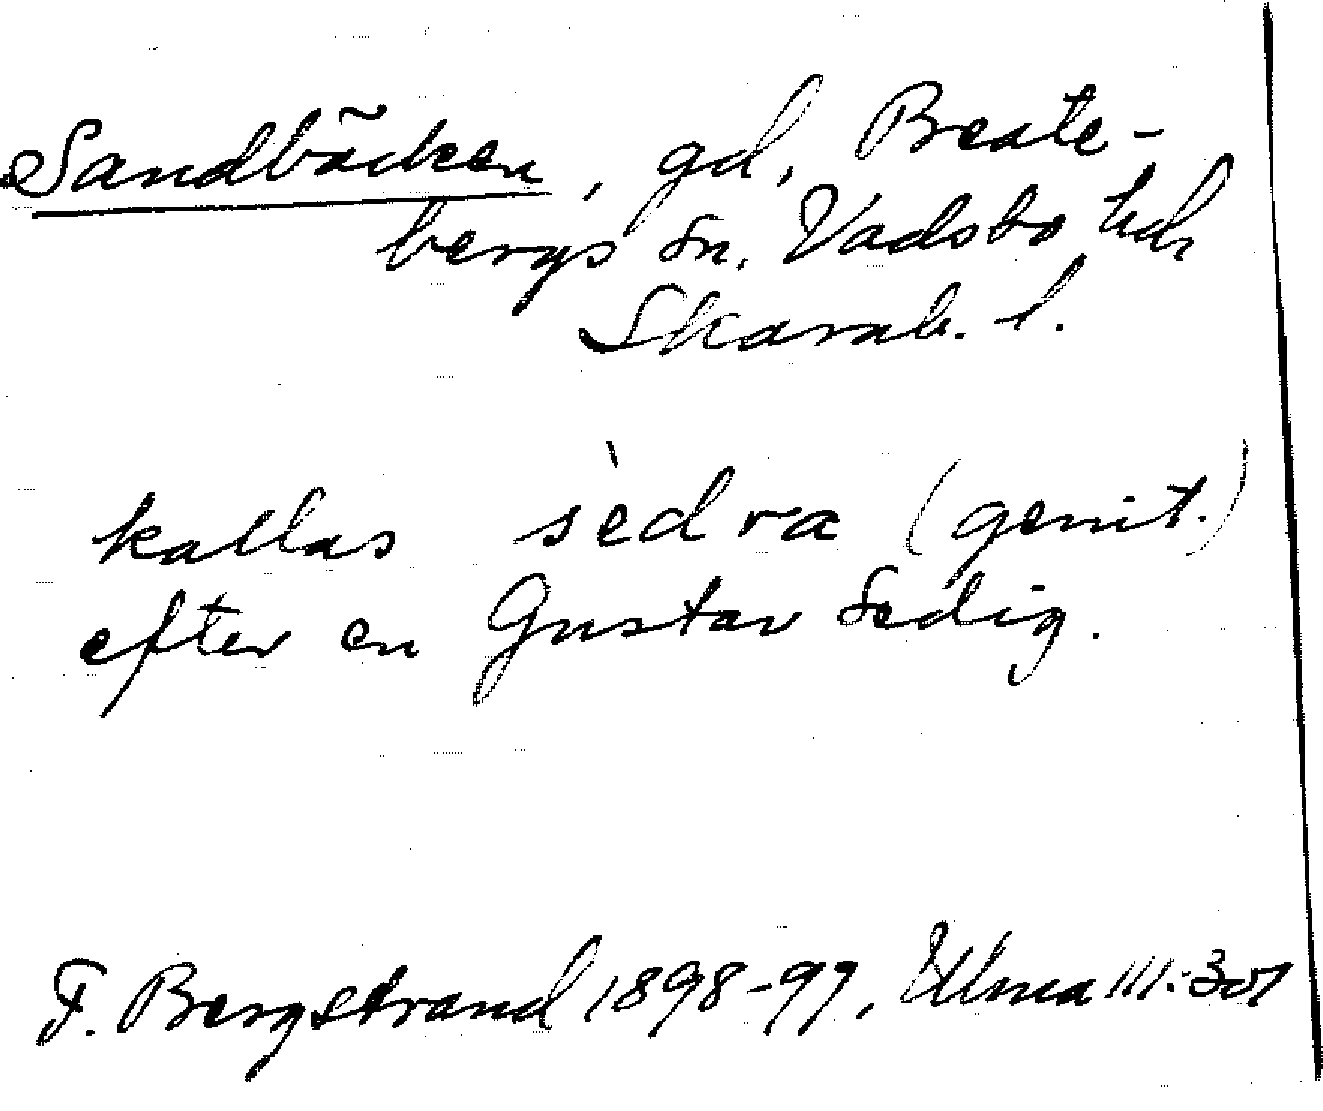 Sandbäcken, gd, Beate-
bergs sn. Vadsbo hd,
Skarab. l.
kallas sèdra (genit.)
efter en Gustav Sedig.
F. Bergstrand 1898-99, Ulma 111:301